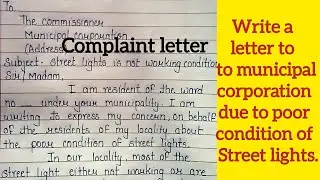 To,
The commissioner
Municipal corporation
(Address)
Complaint letter
Subject- Street lights is not working condition
Sir/Madam,
I am resident of the ward
no _ under your municipality. I am
writing to express my concern, on behalf
of the residents of my locality about
the poor condition of street lights.
In our locality, most of the
street light either not working or are
Write a
letter to
to municipal
corporation
due to poor
condition of
Street lights.